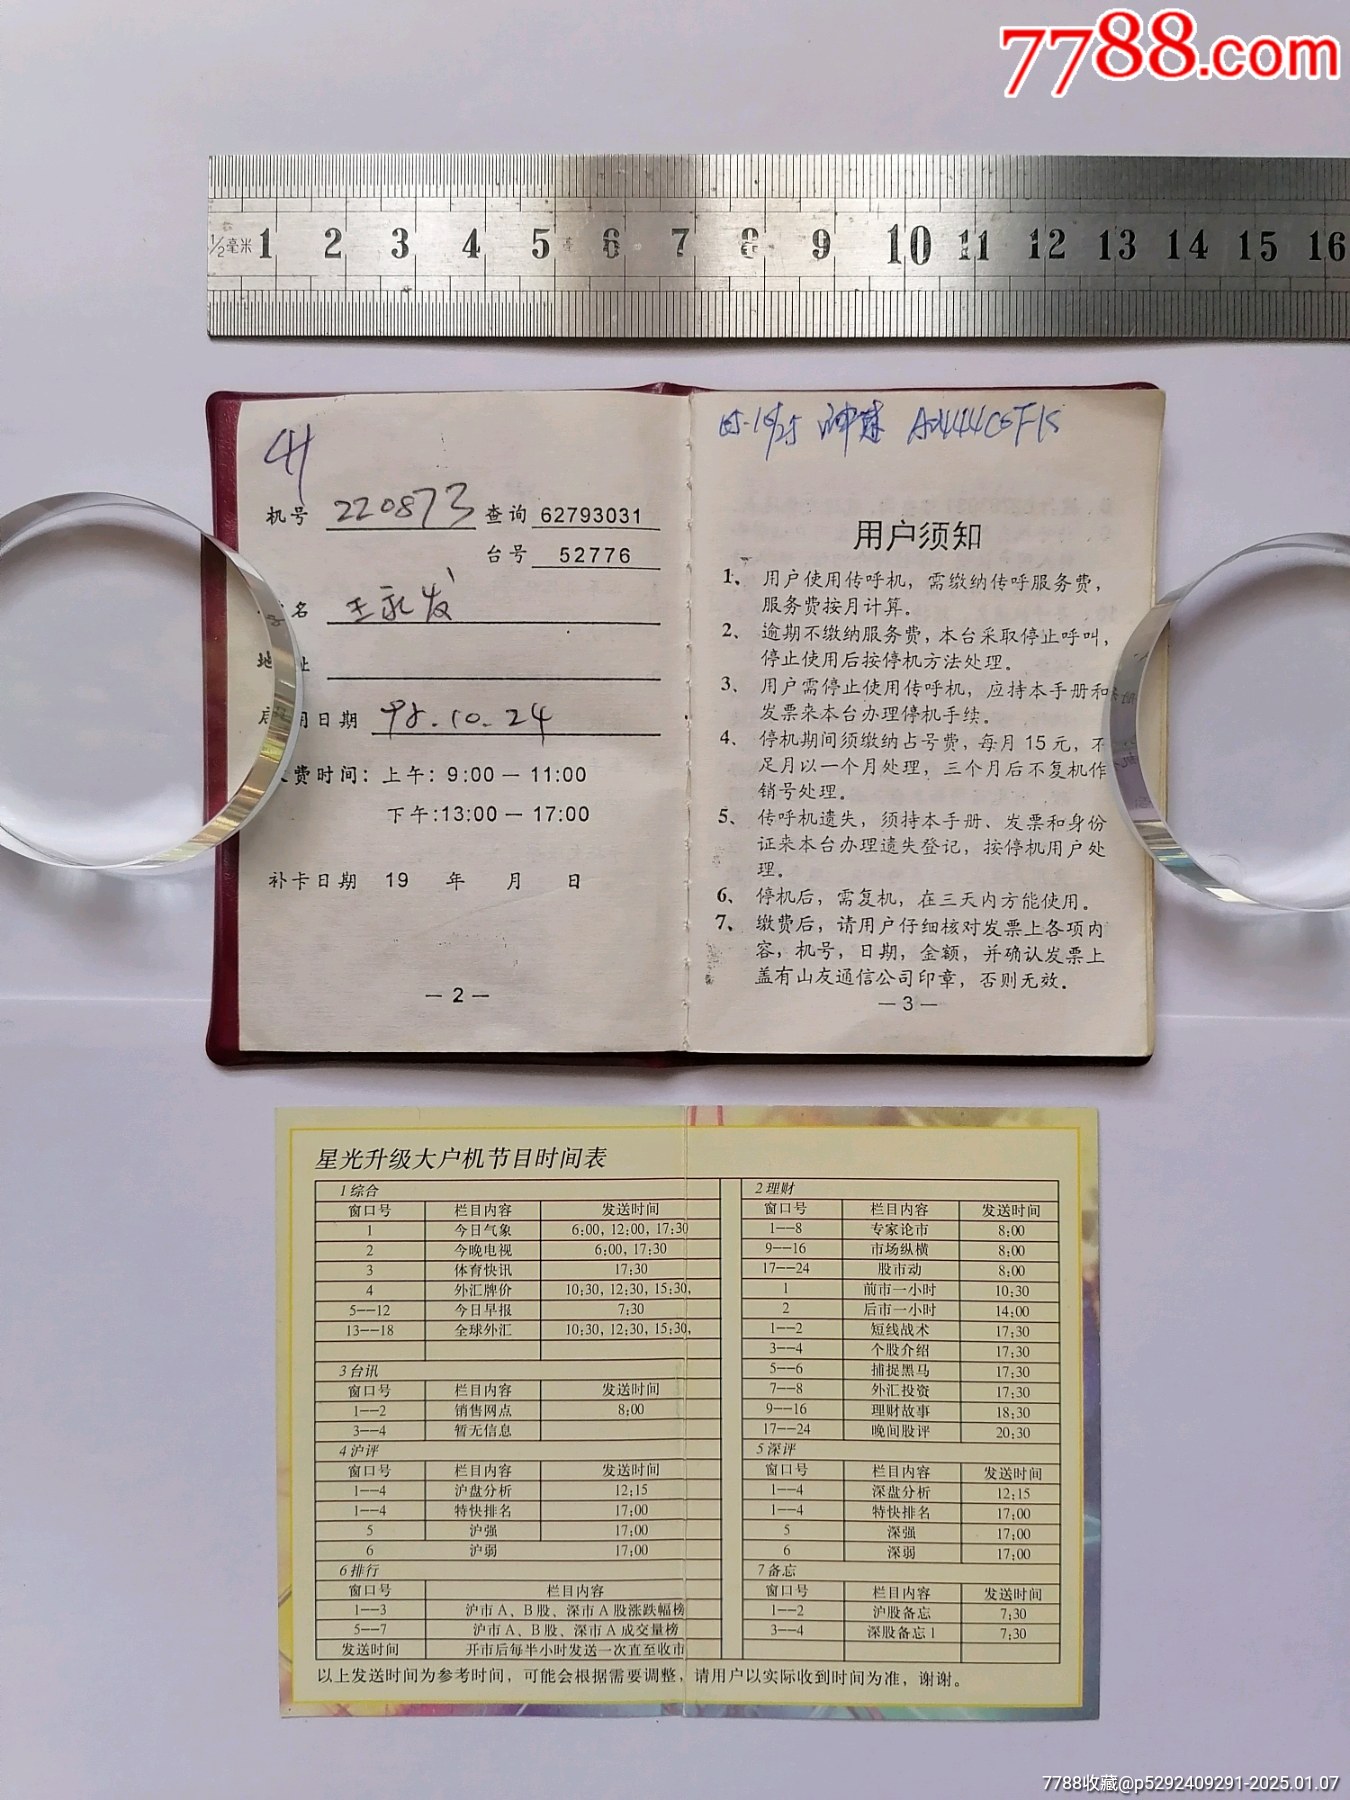 7788.com
1/2毫米 1 2 3 4 5 6 7 8 9 10 11 12 13 14 15 16
CH
机号 220873 查询 62793031
台号 52776
名 王永发
地 址
启用日期 98.10.24
费时间：上午：9:00－11:00
下午:13:00－17:00
补卡日期 19 年 月 日
－2－
用户须知
1、用户使用传呼机，需缴纳传呼服务费，
服务费按月计算。
2、逾期不缴纳服务费，本台采取停止呼叫，
停止使用后按停机方法处理。
3、用户需停止使用传呼机，应持本手册和
发票来本台办理停机手续。
4、停机期间须缴纳占号费，每月15元，不
足月以一个月处理，三个月后不复机作
销号处理。
5、传呼机遗失，须持本手册、发票和身份
证来本台办理遗失登记，按停机用户处
理。
6、停机后，需复机，在三天内方能使用。
7、缴费后，请用户仔细核对发票上各项内
容，机号，日期，金额，并确认发票上
盖有山友通信公司印章，否则无效。
－3－
星光升级大户机节目时间表
1综合
窗口号 栏目内容 发送时间
1 今日气象 6:00, 12:00, 17:30
2 今晚电视 6:00, 17:30
3 体育快讯 17:30
4 外汇牌价 10:30, 12:30, 15:30,
5—12 今日早报 7:30
13—18 全球外汇 10:30, 12:30, 15:30,
3台讯
窗口号 栏目内容 发送时间
1—2 销售网点 8:00
3—4 暂无信息
4沪评
窗口号 栏目内容 发送时间
1—4 沪盘分析 12:15
1—4 特快排名 17:00
5 沪强 17:00
6 沪弱 17:00
6排行
窗口号 栏目内容
1—3 沪市A、B股、深市A股涨跌幅榜
5—7 沪市A、B股、深市A成交量榜
发送时间 开市后每半小时发送一次直至收市
2理财
窗口号 栏目内容 发送时间
1—8 专家论市 8:00
9—16 市场纵横 8:00
17—24 股市动 8:00
1 前市一小时 10:30
2 后市一小时 14:00
1—2 短线战术 17:30
3—4 个股介绍 17:30
5—6 捕捉黑马 17:30
7—8 外汇投资 17:30
9—16 理财故事 18:30
17—24 晚间股评 20:30
5深评
窗口号 栏目内容 发送时间
1—4 深盘分析 12:15
1—4 特快排名 17:00
5 深强 17:00
6 深弱 17:00
7备忘
窗口号 栏目内容 发送时间
1—2 沪股备忘 7:30
3—4 深股备忘1 7:30
以上发送时间为参考时间，可能会根据需要调整，请用户以实际收到时间为准，谢谢。
7788收藏@p5292409291-2025.01.07